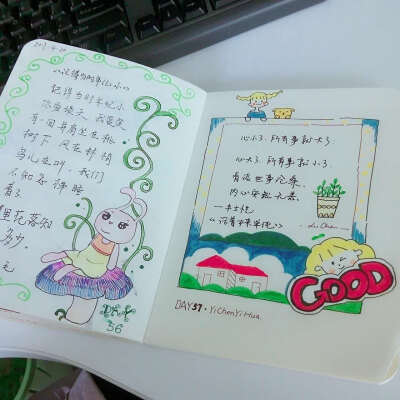 《记得当时年纪小》
记得当时年纪小
你爱谈天 我爱笑
有一回并肩坐在桃
树下 风在林梢
鸟儿在叫，我们
不知怎样睡
着了
里花落知
多少.
DAY
36
心小了，所有事就大了
心大了，所有事就小了.
看淡世事沧桑,
内心安然无恙.
—丰子恺
《活着本来单纯》
GOOD
DAY37·YiChenYiHua